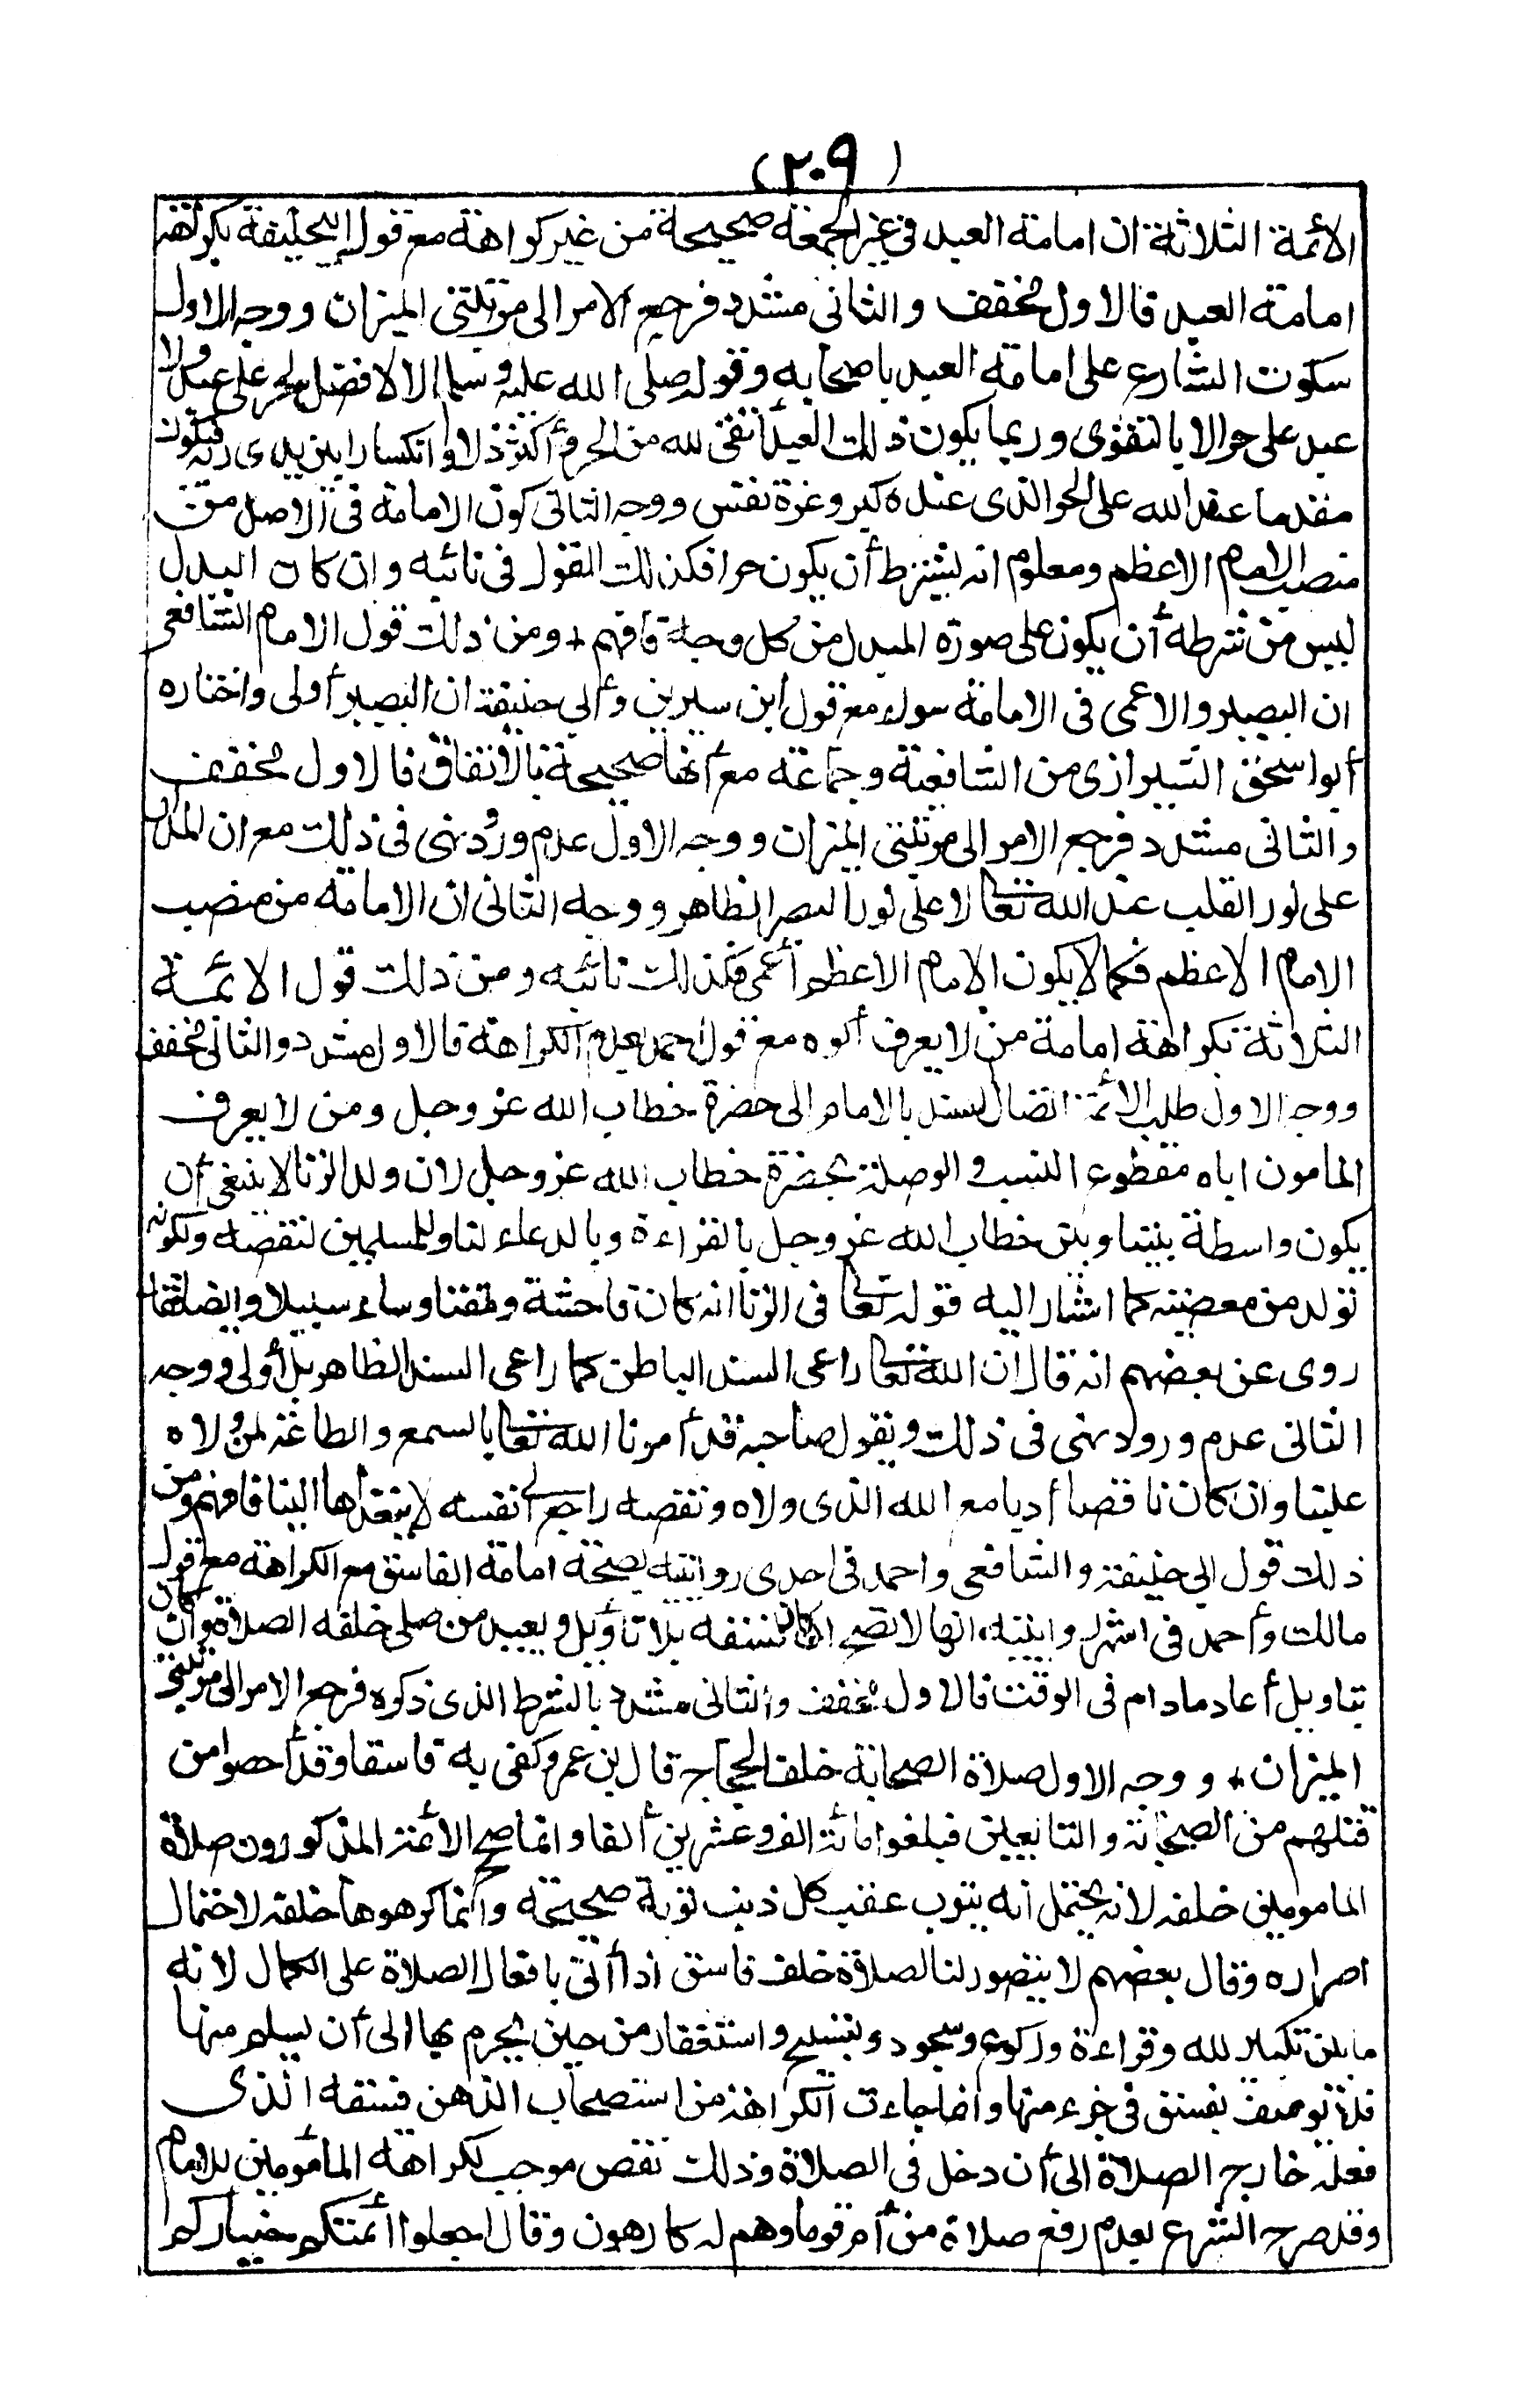 (٢٠٩)
الأئمة الثلاثة ان امامة العبد في غير الجمعة صحيحة من غير كراهة مع قول ابي حنيفة بكراهة
امامة العبد فالاول مخفف والثاني مشدد فرجع الامر الى مرتبتي الميزان ووجه الاول
سكوت الشارع على امامة العبد باصحابه وقوله صلى الله عليه وسلم الا لا فضل لحر على عبد ولا
عبد على حر الا بالتقوى وربما يكون ذلك العبد أتقى لله من الحر وأكثر ذلا وانكسارا بين يدي ربه فيكون
مقدما عند الله على الحر الذي عنده كبر وعزة نفس ووجه الثاني كون الامامة في الاصل من
منصب الامام الاعظم ومعلوم انه يشترط أن يكون حرا فكذلك القول في نائبه وان كان البدل
ليس من شرطه أن يكون على صورة المبدل من كل وجه فافهم + ومن ذلك قول الامام الشافعي
ان البصير والاعمى في الامامة سواء مع قول ابن سيرين وأبي حنيفة ان البصير أولى واختاره
أبو اسحق الشيرازي من الشافعية وجماعة مع أنها صحيحة بالاتفاق فالاول مخفف
والثاني مشدد فرجع الامر الى مرتبتي الميزان ووجه الاول عدم ورود نهي في ذلك مع ان المدار
على نور القلب عند الله تعالى لا على نور البصر الظاهر ووجه الثاني ان الامامة من منصب
الامام الاعظم فكما لا يكون الامام الاعظم أعمى فكذلك نائبه ومن ذلك قول الائمة
الثلاثة بكراهة امامة من لا يعرف أبوه مع قول احمد بعدم الكراهة فالاول مشدد والثاني مخفف
ووجه الاول طلب الائمة اتصال السند بالامام الى حضرة خطاب الله عز وجل ومن لا يعرف
المأمون اباه مقطوع النسب والوصلة بحضرة خطاب الله عز وجل لان ولد الزنا لا ينبغي أن
يكون واسطة بيننا وبين خطاب الله عز وجل بالقراءة وبالدعاء لنا وللمسلمين لنقصه ولكونه
تولد من معصية كما اشار اليه قوله تعالى في الزنا انه كان فاحشة ومقتا وساء سبيلا وايضا فقد
روي عن بعضهم انه قال ان الله تعالى راعى السند الباطن كما راعى السند الظاهر بل أولى ووجه
الثاني عدم ورود نهي في ذلك ويقول صاحبه قد أمرنا الله تعالى بالسمع والطاعة لمن ولاه
علينا وان كان ناقصا أدبا مع الله الذي ولاه ونقصه راجع الى نفسه لا يتعداها الينا فافهم ومن
ذلك قول ابي حنيفة والشافعي واحمد في احدى روايتيه بصحة امامة الفاسق مع الكراهة مع قول
مالك وأحمد في اشهر روايتيه انها لا تصح ان كان فسقه بلا تأويل ويعيد من صلى خلفه الصلاة وان كان
بتاويل أعاد مادام في الوقت فالاول مخفف والثاني مشدد بالشرط الذي ذكره فرجع الامر الى مرتبتي
الميزان + ووجه الاول صلاة الصحابة خلف الحجاج قال ابن عمر وكفى به فاسقا وقد أحصوا من
قتلهم من الصحابة والتابعين فبلغوا مائة الف وعشرين ألفا وانما صحح الأئمة المذكورون صلاة
المامومين خلفه لانه يحتمل انه يتوب عقب كل ذنب توبة صحيحة وانما كرهوها خلفه لاحتمال
اصراره وقال بعضهم لا يتصور لنا الصلاة خلف فاسق اذا أتى بافعال الصلاة على الكمال لانه
مابين تكبير لله وقراءة وركوع وسجود وتسبيح واستغفار من حين يحرم بها الى أن يسلم منها
فلا يوصف بفسق في جزء منها وانما جاءت الكراهة من استصحاب الذهن فسقه الذي
فعله خارج الصلاة الى أن دخل في الصلاة وذلك نقص موجب لكراهة المأمومين للامام
وقد صرح الشرع بعدم رفع صلاة من أم قوما وهم له كارهون وقال اجعلوا ائمتكم خياركم